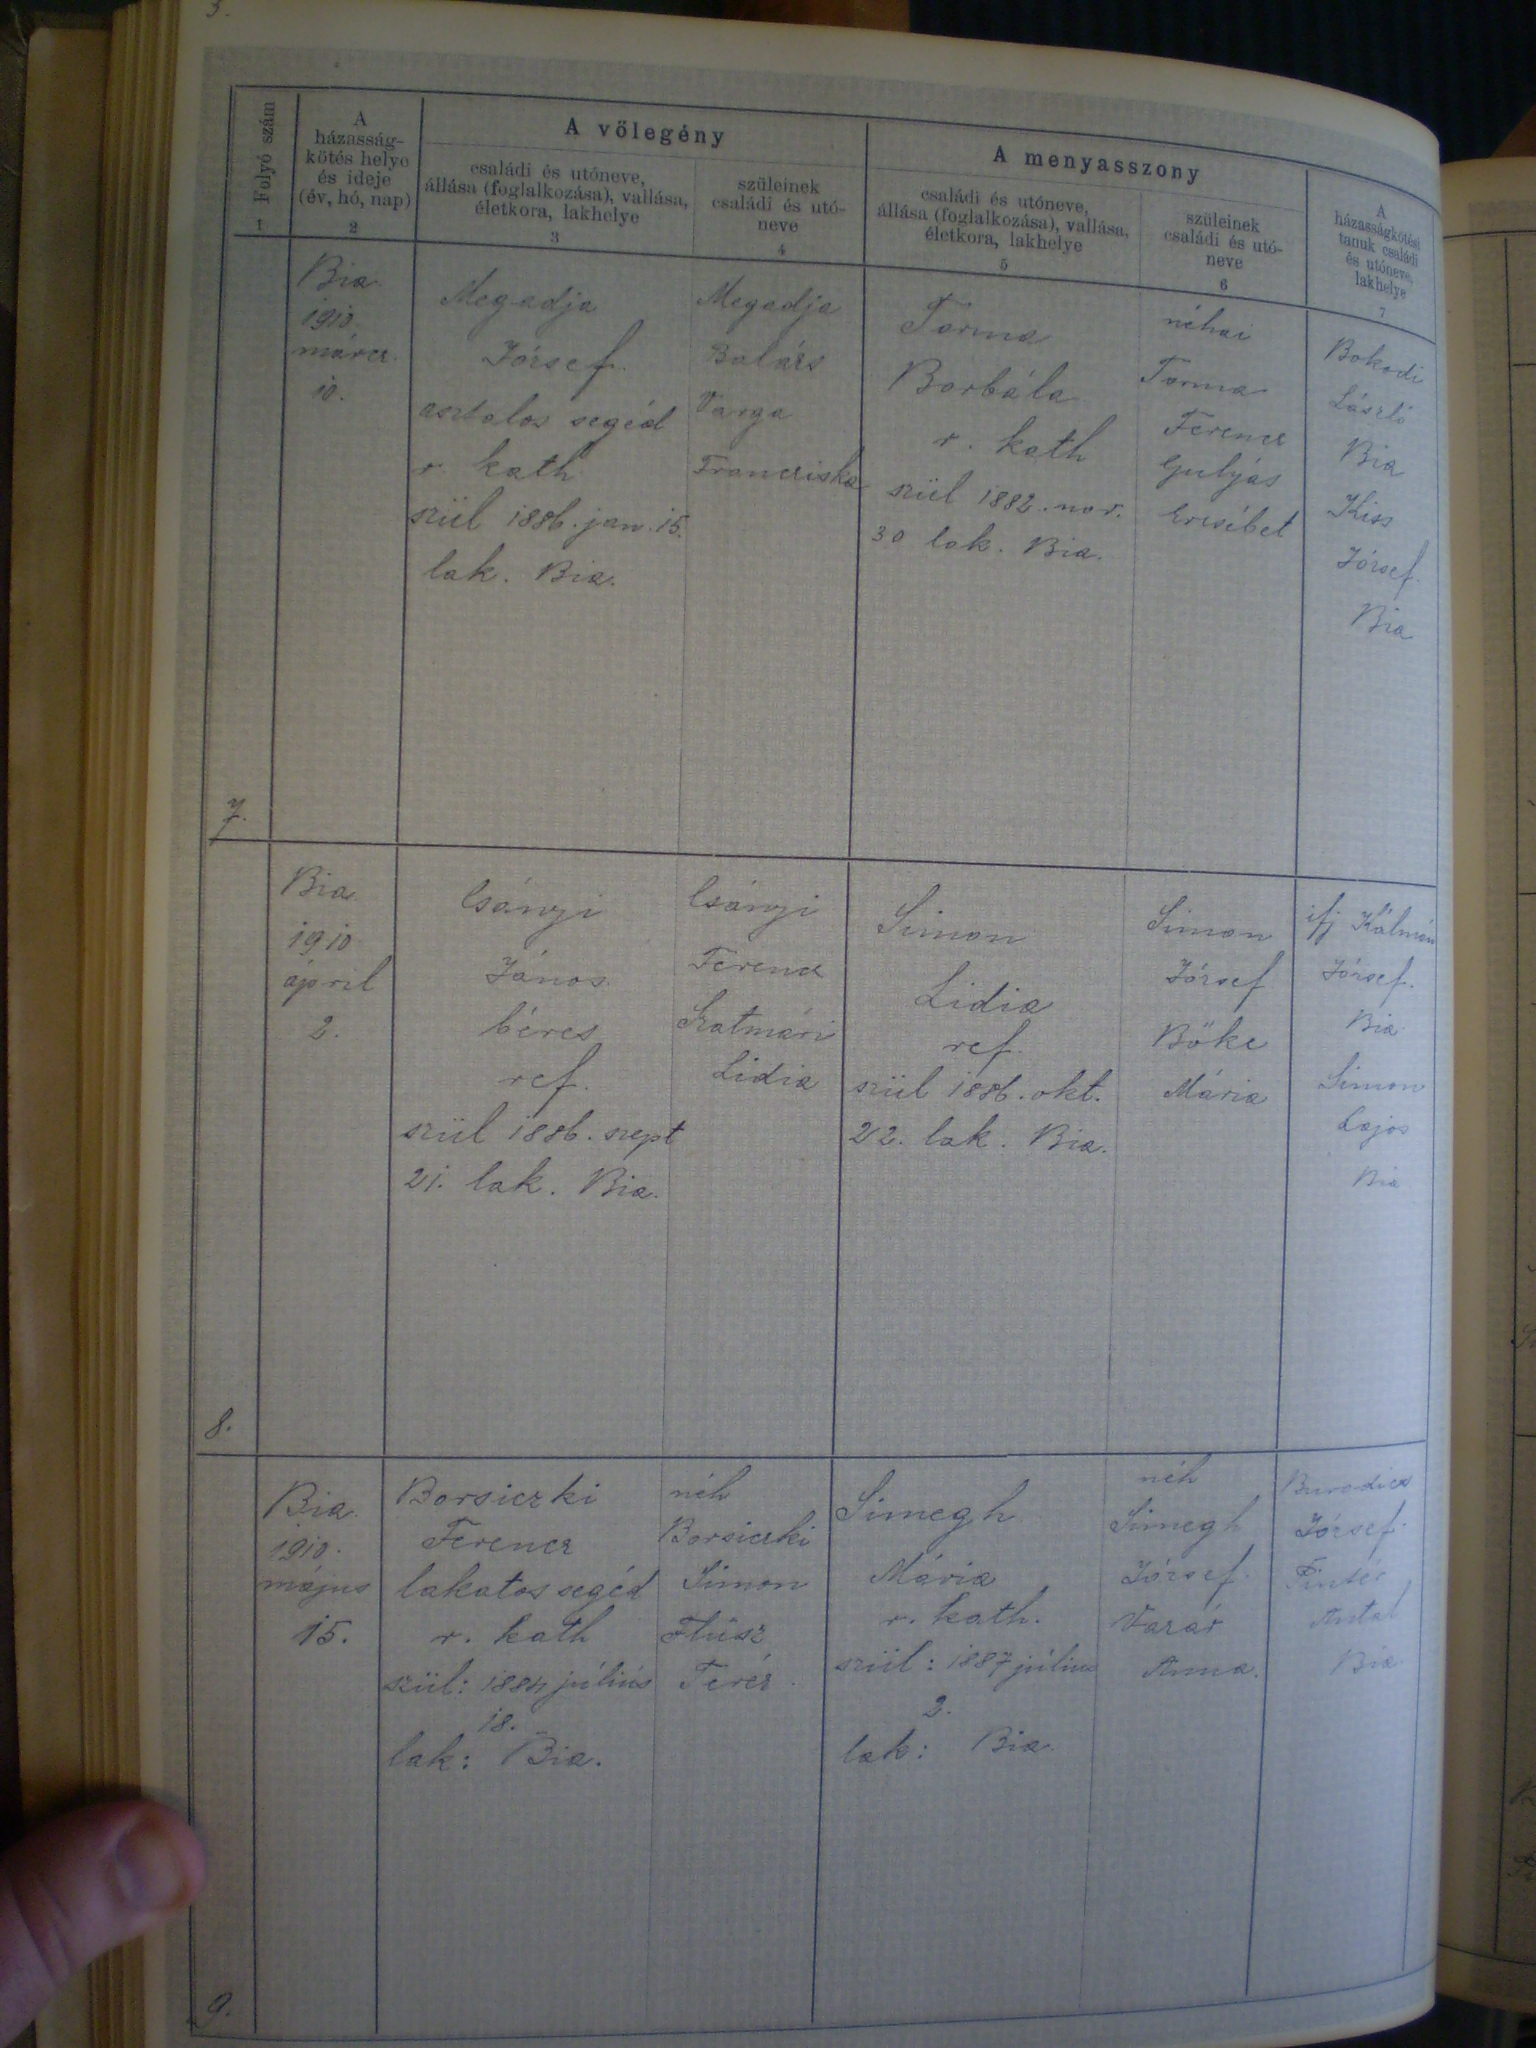 Folyó szám
A
házasság-
kötés helye
és ideje
(év, hó, nap)
A vőlegény
családi és utóneve,
állása (foglalkozása), vallása,
életkora, lakhelye
szüleinek
családi és utó-
neve
A menyasszony
családi és utóneve,
állása (foglalkozása), vallása,
életkora, lakhelye
szüleinek
családi és utó-
neve
A
házasságkötési
tanuk családi
és utóneve,
lakhelye
1
2
3
4
5
6
7
7.
Bia
1910.
márcz.
10.
Megadja
József
asztalos segéd
r. kath
szül 1886. jan. 15.
lak. Bia.
Megadja
Balázs
Varga
Francziska
Torma
Borbála
r. kath
szül 1882. nov.
30 lak. Bia.
néhai
Torma
Ferencz
Gulyás
Erzsébet
Bokodi
László
Bia
Kiss
József
Bia
8.
Bia
1910
ápril
2.
Csányi
János
béres
ref.
szül 1886. szept
21. lak. Bia.
Csányi
Ferencz
Szatmári
Lidia
Simon
Lidia
ref.
szül 1886. okt.
22. lak. Bia.
Simon
József
Bőke
Mária
ifj Kálmán
József.
Bia
Simon
Lajos
Bia
9.
Bia
1910.
május
15.
Borsiczki
Ferencz
lakatos segéd
r. kath
szül: 1884 július
18.
lak: Bia.
néh
Borsiczki
Simon
Teréz
Simegh
Mária
r. kath.
szül: 1887 július
2.
lak: Bia.
néh
Simegh
József.
Anna.
József
Antal
Bia